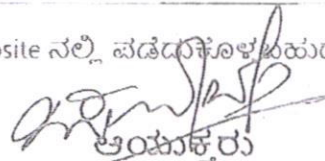 site ನಲ್ಲಿ ಪಡೆದುಕೊಳ್ಳಬಹುದ
ಆಯುಕ್ತರು